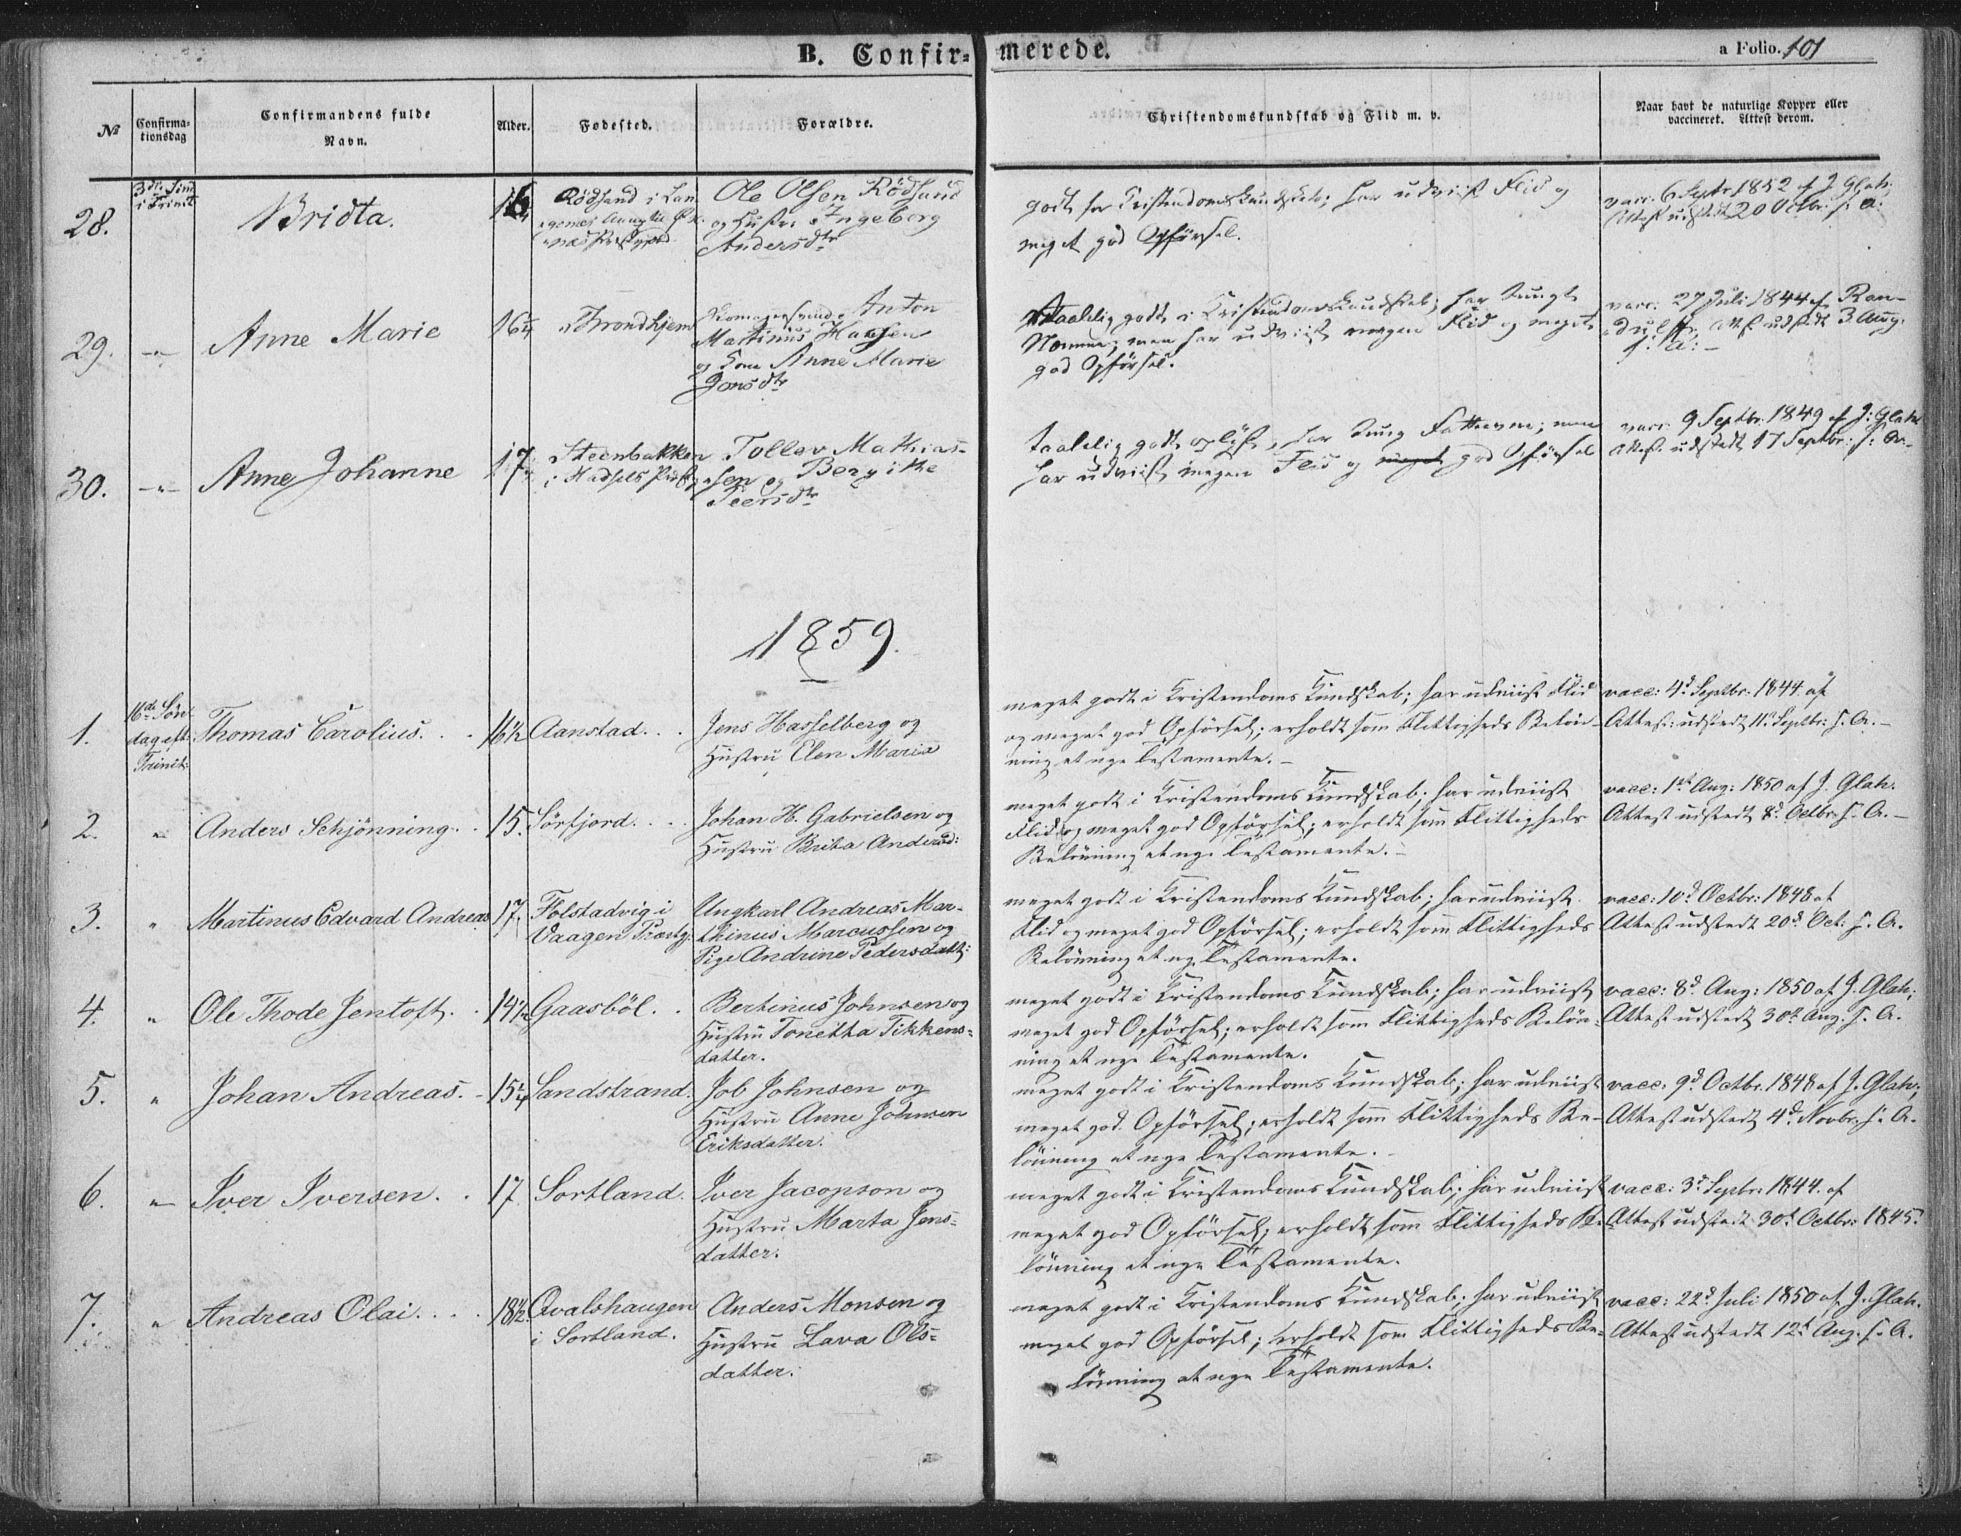 B. Confir- merede.
a Folio. 101
No
Confirma-
tionsdag
Confirmandens fulde
Navn.
Alder.
Fødested.
Forældre.
Christendomskundskab og Flid m. v.
Naar havt de naturlige Kopper eller
vaccineret. Attest derom.
28.
i Trinit
Bridta.
16
Rødsand i
Ole Olsen Rødsand
og Hustr: Ingeborg
Andersdtr
godt for Kristendomskundskab; har udviist Flid og
meget god Opførsel.
vacc. 6 Septr 1852 af J Glah;
Attest udstedt 20 Octbr: s. a.
29.
-"-
Anne Marie
16¼
Trondhjem
Anton
Martinus Hansen
og Kone Anne Marie
Jonsdtr
Taalelig godt i Kristendomskundskab; har tungt
Nemme; men har udviist megen Flid og meget
god Opførsel.
vacc: 27 Juli 1844 af Ran-
dulf, Att. udstedt 3 Aug.
s: a: -
30.
-"-
Anne Johanne
17
Steenbakken
i Hadsels Præstg
Tollev Mathias-
sen og Bergithe
Peersdtr
taalelig godt oplyst, har tung Fatteevne; men
har udviist megen Flid og meget god Opførsel
vacc. 9 Septbr. 1849 af J: Glah
Attest. udstedt 17 Septbr: s: a-
1859.
1.
16de Søn-
dag eft
Trinit:
Thomas Carolius. . .
16½
Aanstad. . .
Jens Hasselberg og
Hustru Elen Maria
meget godt i Kristendoms Kundskab; har udviist Flid
og meget god Opførsel; erholdt som Flittigheds Beløn-
ning et nye Testamente. -
vacc: 4d Septbr: 1844 af
Attest: udstedt 11t Septbr: s. A. -
2.
"
Anders Schjønning. .
15.
Sørfjord. . . .
Johan H. Gabrielsen og
Hustru Brita Andersd:
meget godt i Kristendoms Kundskab; har udviist
Flid og meget god Opførsel; erholdt som Flittigheds
Belønning et nye Testamente. -
vacc: 1st Aug: 1850 af J. Glah.
Attest udstedt 8d Octbr: s. A. -
3.
"
Martinus Edvard Andreas
17.
Holstadvig i
Vaagen Præstg:
Ungkarl Andreas Mar-
thinus Marcussen og
Pige Andrine Pedersdatt:
meget godt i Kristendoms Kundskab; har udviist
Flid og meget god Opførsel; erholdt som Flittigheds
Belønning et nye Testamente.
vacc: 10d Octbr: 1848 af
Attest udstedt 20d Oct: s. A.
4.
"
Ole Thode Jentoft. .
14½
Gaasbøl. .
Bertinus Johnsen og
Hustru Tonetta Tikkens-
datter.
meget godt i Kristendoms Kundskab; har udviist
meget god Opførsel; erholdt som Flittigheds Beløn-
ning et nye Testamente.
vacc: 8d Aug: 1850 af J. Glah;
Attest udstedt 30d Aug. s. A.
5.
"
Johan Andreas. -
15¼
Sandstrand.
Job Johnsen og
Hustru Anne Johnsen
Eriksdatter.
meget godt i Kristendoms Kundskab; har udviist
meget god Opførsel; erholdt som Flittigheds Be-
lønning et nye Testamente. -
vacc. 9d Octbr. 1848 af J. Glah;
Attest udstedt 4d Novbr. s. A.
6.
"
Iver Iversen. .
17
Sortland.
Iver Jacopson og
Hustru Marta Jens-
datter.
meget godt i Kristendoms Kundskab; har udviist
meget god Opførsel; erholdt som Flittigheds Be-
lønning et nye Testamente.
vacc: 3d Septbr: 1844. af
Attest udstedt 30d Octbr: 1845.
7.
"
Andreas Olai. . . .
18½
Qvalshaugen
i Sortland.
Anders Monsen og
Hustru Lava Ols-
datter.
meget godt i Kristendoms Kundskab; har udviist
meget god Opførsel; erholdt som Flittigheds Be-
lønning et nye Testamente.
vacc: 22d Juli 1850 af J. Glah.
Attest udstedt 12t Aug. s. A.